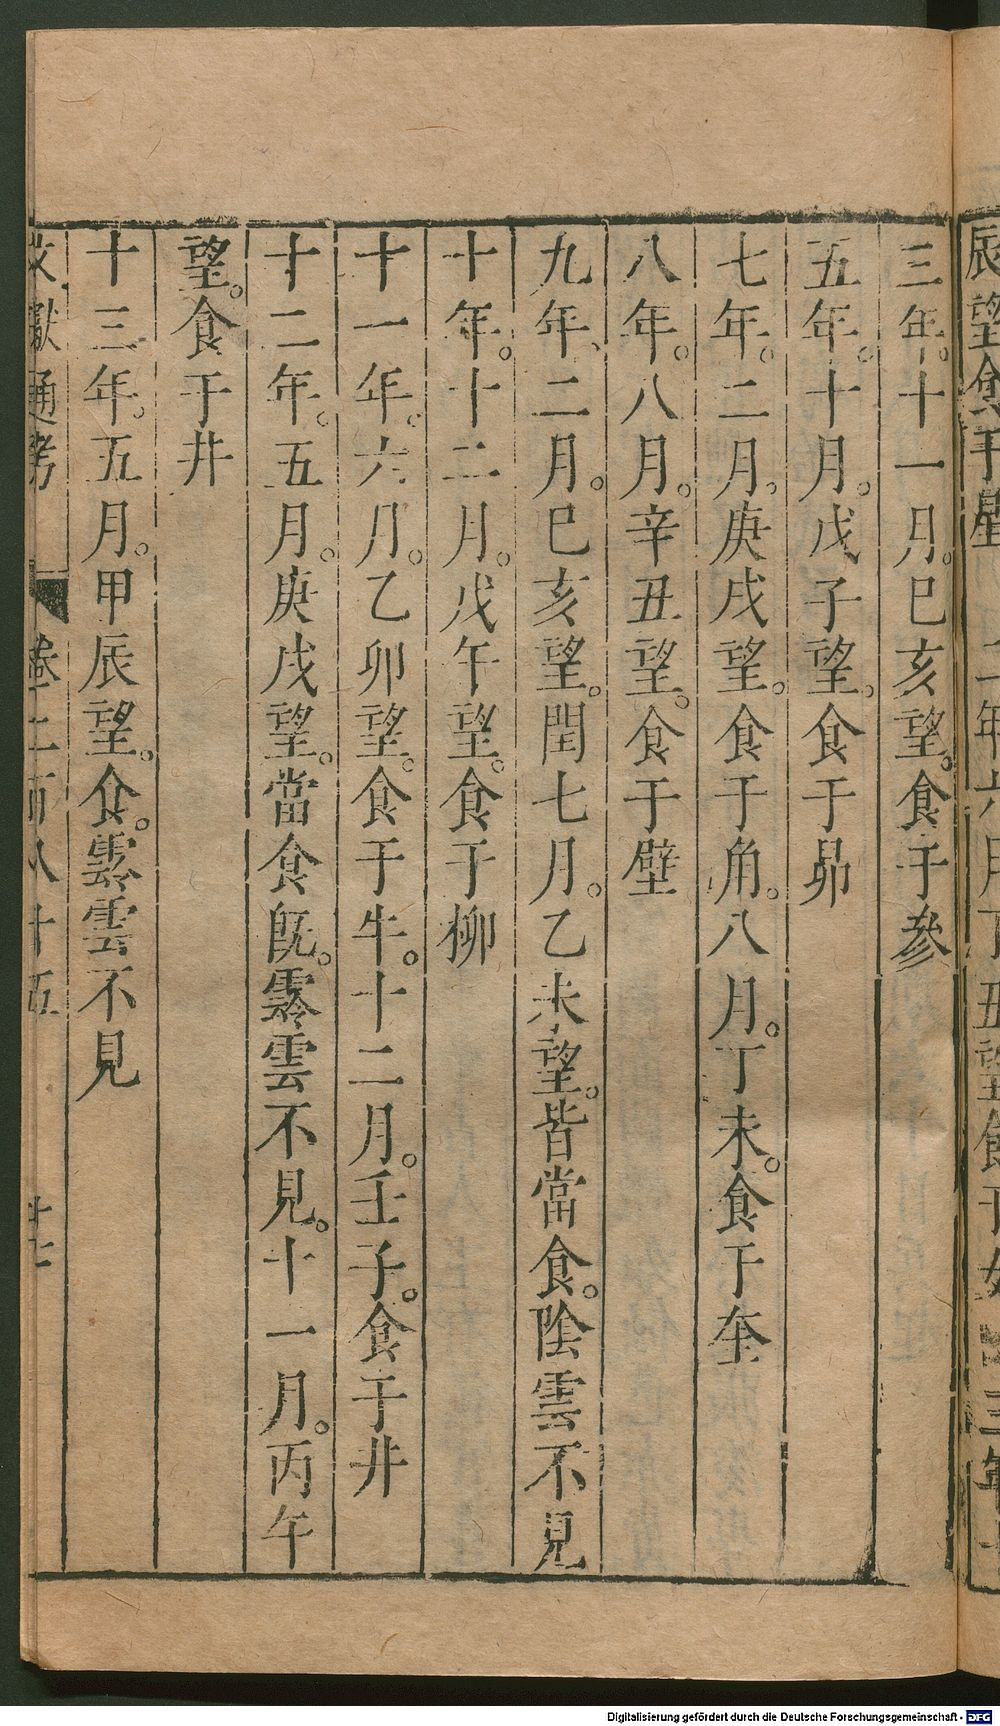 三年。十一月。巳亥望。食于參
五年。十月。戊子望。食于昴
七年。二月。庚戌望。食于角。八月。丁未。食于奎
八年。八月。辛丑望。食于壁
九年、二月。巳亥望。閏七月。乙未望。皆當食。陰雲不見
十年。十二月。戊午望。食于柳
十一年。六月。乙卯望。食于牛。十二月。壬子。食于井
十二年。五月。庚戌望。當食旣。霠雲不見。十一月。丙午
望。食于井
十三年。五月。甲辰望。食。霠雲不見
文獻通考 卷二百八十五
Digitalisierung gefördert durch die Deutsche Forschungsgemeinschaft - DFG